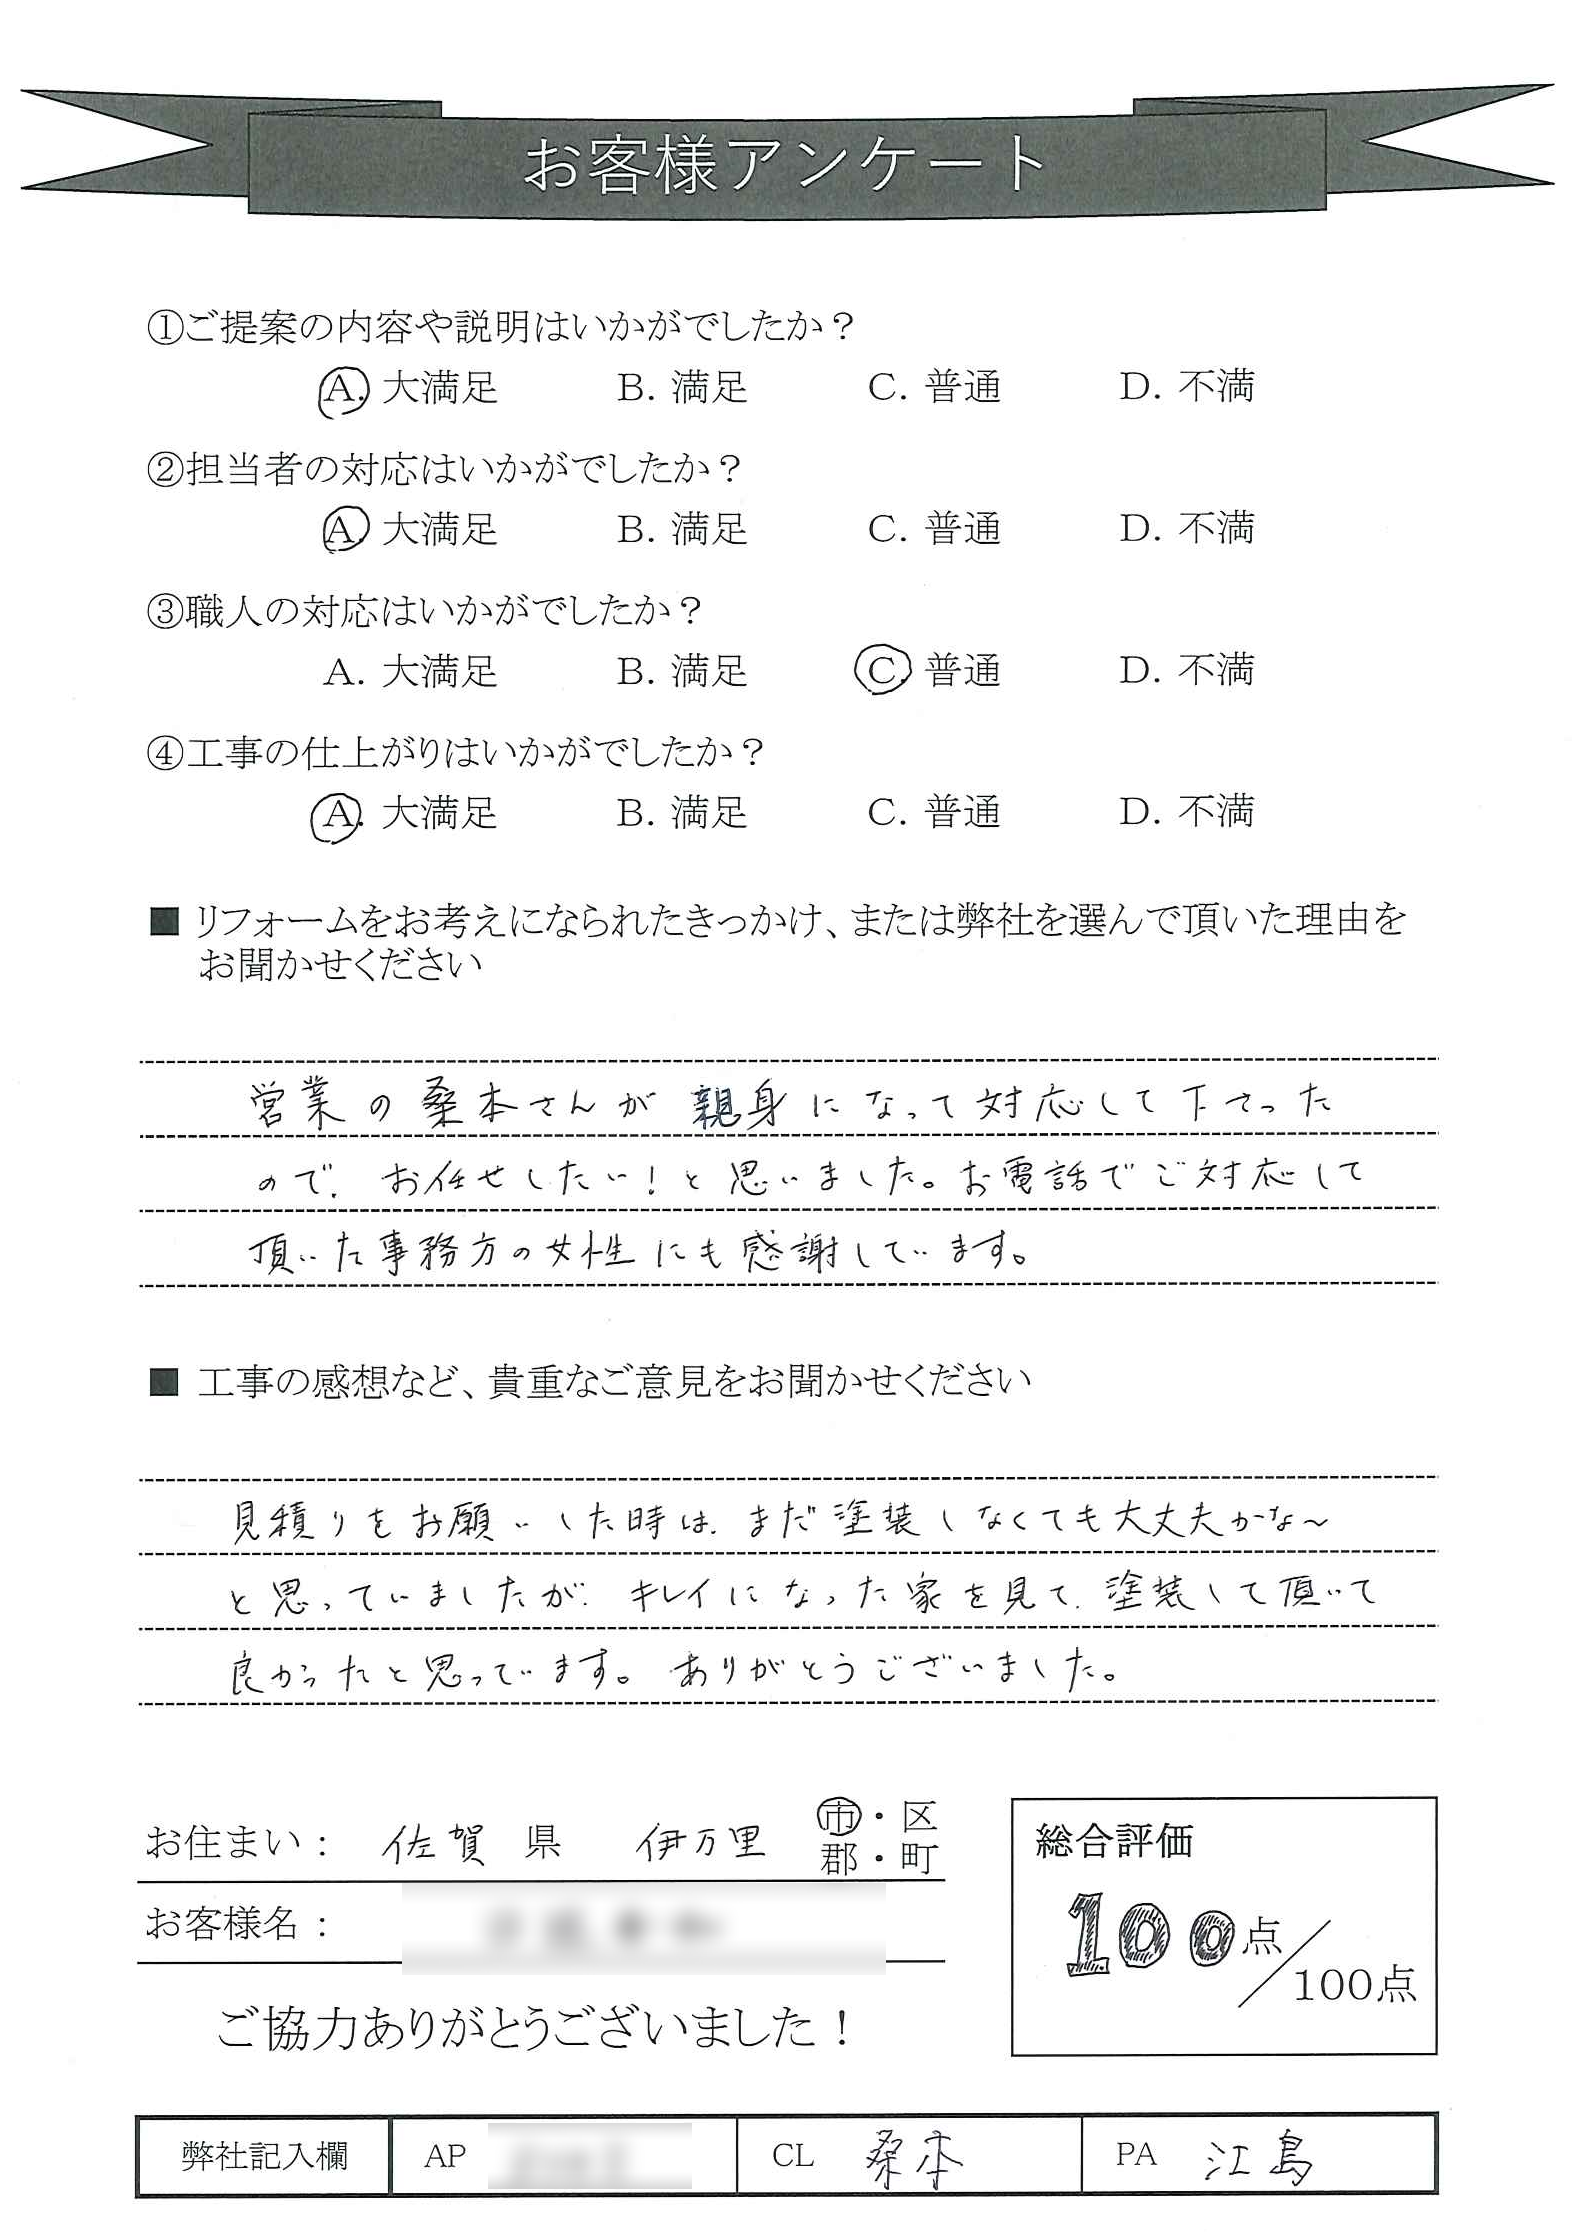 お客様アンケート
①ご提案の内容や説明はいかがでしたか？
A. 大満足 B. 満足 C. 普通 D. 不満
②担当者の対応はいかがでしたか？
A. 大満足 B. 満足 C. 普通 D. 不満
③職人の対応はいかがでしたか？
A. 大満足 B. 満足 C. 普通 D. 不満
④工事の仕上がりはいかがでしたか？
A. 大満足 B. 満足 C. 普通 D. 不満
■ リフォームをお考えになられたきっかけ、または弊社を選んで頂いた理由を
お聞かせください
営業の桑本さんが親身になって対応して下さった
ので、お任せしたい！と思いました。お電話でご対応して
頂いた事務方の女性にも感謝しています。
■ 工事の感想など、貴重なご意見をお聞かせください
見積りをお願いした時は、まだ塗装しなくても大丈夫かな～
と思っていましたが、キレイになった家を見て、塗装して頂いて
良かったと思っています。ありがとうございました。
お住まい： 佐賀 県 伊万里 市・区
郡・町
お客様名：
総合評価
100点／100点
ご協力ありがとうございました！
弊社記入欄 AP CL 桑本 PA 江島